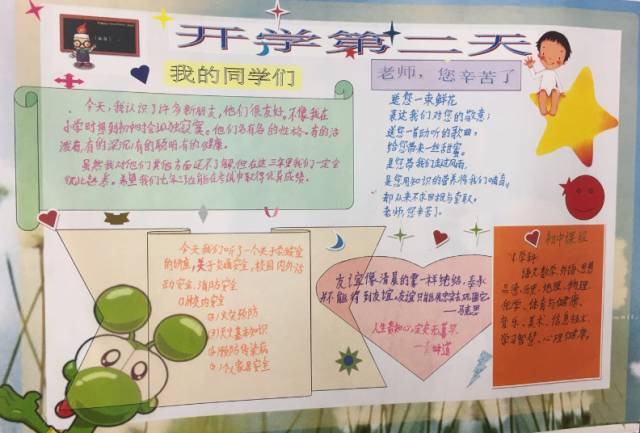 开学第二天
我的同学们
今天,我认识了许多新朋友,他们很友好,不像我在
小学时想到初中时会孤独寂寞。他们各有各的性格,有的活
泼有,有的深沉,有的聪明,有的健康。
虽然我对他们其他方面还不了解,但在这三年里我们一定会
彼此
希望我们七年
班能在考试中取得优异成绩。
老师,您辛苦了
送您一束鲜花
表达我们对您的敬意;
送您一首动听的歌曲,
给您带来一丝甜蜜。
是您带我们走过风雨,
是您用知识的营养将我们哺育,
却从来不求回报与索取。
老师,您辛苦了。
今天我们听了一个关于安全
的讲座,关于交通安全,校园内外活
动安全,消防安全
①校内安全
②火灾预防
③
基本知识
④预防传染病
⑤个人家居安全
友谊像清晨的雾一样纯洁,奉承
并不能得到友谊,友谊只能用忠实去巩固它。
——马克思
人生贵知心,定交无暮早。
——
初中课程
学科
语文、数学、外语、思想
品德、历史、地理、物理、
化学、体育与健康、
音乐、美术、信息技术、
学习智慧、心理健康。